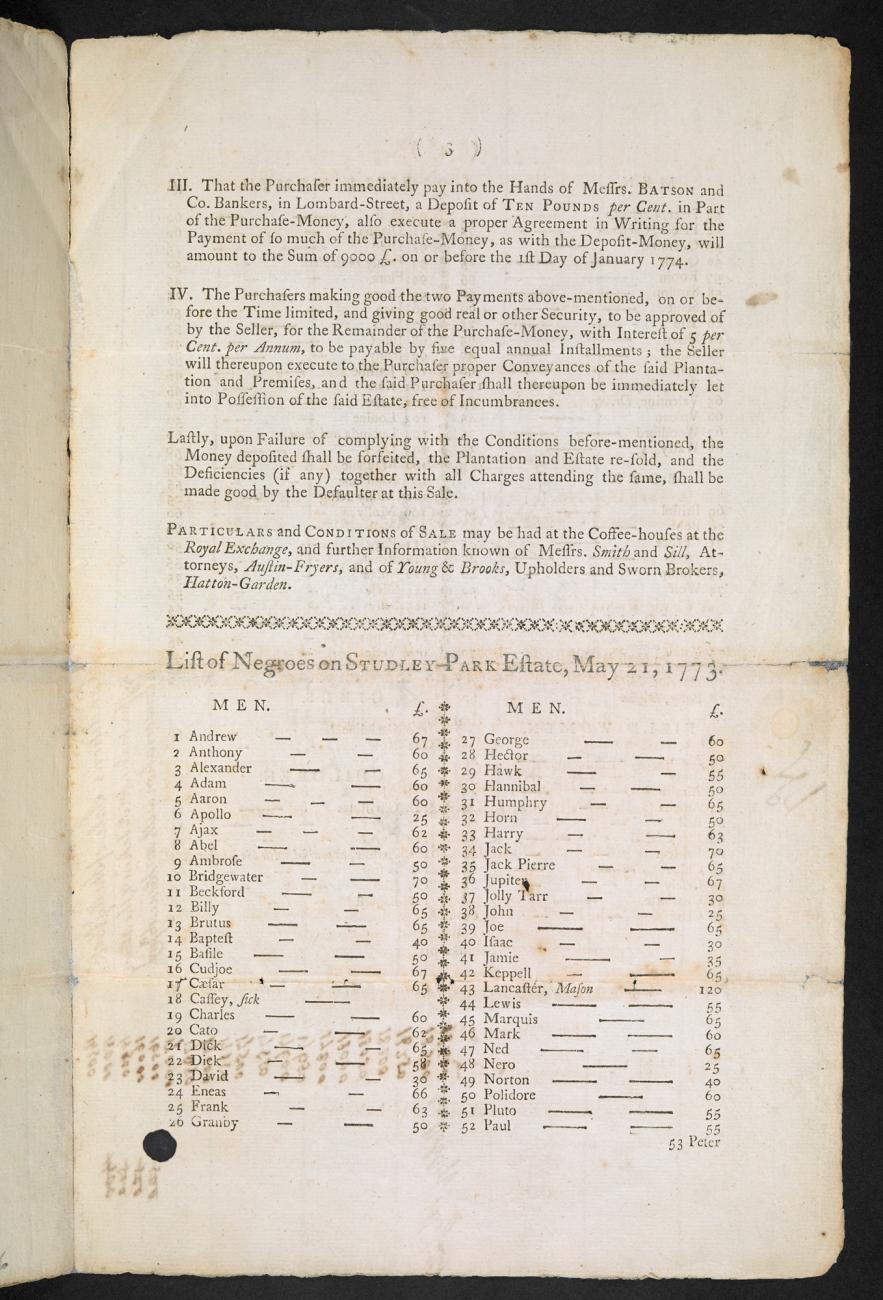 ( 3 )
III. That the Purchaſer immediately pay into the Hands of Meſſrs. BATSON and
Co. Bankers, in Lombard-Street, a Depoſit of TEN POUNDS per Cent. in Part
of the Purchaſe-Money, alſo execute a proper Agreement in Writing for the
Payment of ſo much of the Purchaſe-Money, as with the Depoſit-Money, will
amount to the Sum of 9000 £. on or before the 1ſt Day of January 1774.
IV. The Purchaſers making good the two Payments above-mentioned, on or be-
fore the Time limited, and giving good real or other Security, to be approved of
by the Seller, for the Remainder of the Purchaſe-Money, with Intereſt of 5 per
Cent. per Annum, to be payable by five equal annual Inſtallments; the Seller
will thereupon execute to the Purchaſer proper Conveyances of the ſaid Planta-
tion and Premiſes, and the ſaid Purchaſer ſhall thereupon be immediately let
into Poſſeſſion of the ſaid Eſtate, free of Incumbrances.
Laſtly, upon Failure of complying with the Conditions before-mentioned, the
Money depoſited ſhall be forfeited, the Plantation and Eſtate re-ſold, and the
Deficiencies (if any) together with all Charges attending the ſame, ſhall be
made good by the Defaulter at this Sale.
PARTICULARS and CONDITIONS of SALE may be had at the Coffee-houſes at the
Royal Exchange, and further Information known of Meſſrs. Smith and Sill, At-
torneys, Auſtin-Fryers, and of Young & Brooks, Upholders and Sworn Brokers,
Hatton-Garden.
Liſt of Negroes on STUDLEY-PARK Eſtate, May 21, 1773.
MEN. £.
1 Andrew — — — 67
2 Anthony — — 60
3 Alexander — — 65
4 Adam — — 60
5 Aaron — — — 60
6 Apollo — — 25
7 Ajax — — — 62
8 Abel — — 60
9 Ambroſe — — 50
10 Bridgewater — — 70
11 Beckford — — 50
12 Billy — — 65
13 Brutus — — 65
14 Bapteſt — — 40
15 Baſile — — 50
16 Cudjoe — — 67
17 Cæſar — — 65
18 Caſſey, ſick —
19 Charles — — 60
20 Cato — — 62
21 Dick — — 65
22 Dick — — 58
23 David — — 30
24 Eneas — — 66
25 Frank — — 63
26 Granby — — 50
MEN. £.
27 George — — 60
28 Hector — — 50
29 Hawk — — 55
30 Hannibal — — 50
31 Humphry — — 65
32 Horn — — 50
33 Harry — — 63
34 Jack — — 70
35 Jack Pierre — — 65
36 Jupiter — — 67
37 Jolly Tarr — — 30
38 John — — 25
39 Joe — — 65
40 Iſaac — — 30
41 Jamie — — 35
42 Keppell — — 65
43 Lancaſter, Maſon — 120
44 Lewis — — 55
45 Marquis — 65
46 Mark — — 60
47 Ned — — 65
48 Nero — 25
49 Norton — — 40
50 Polidore — 60
51 Pluto — — 55
52 Paul — — 55
53 Peter